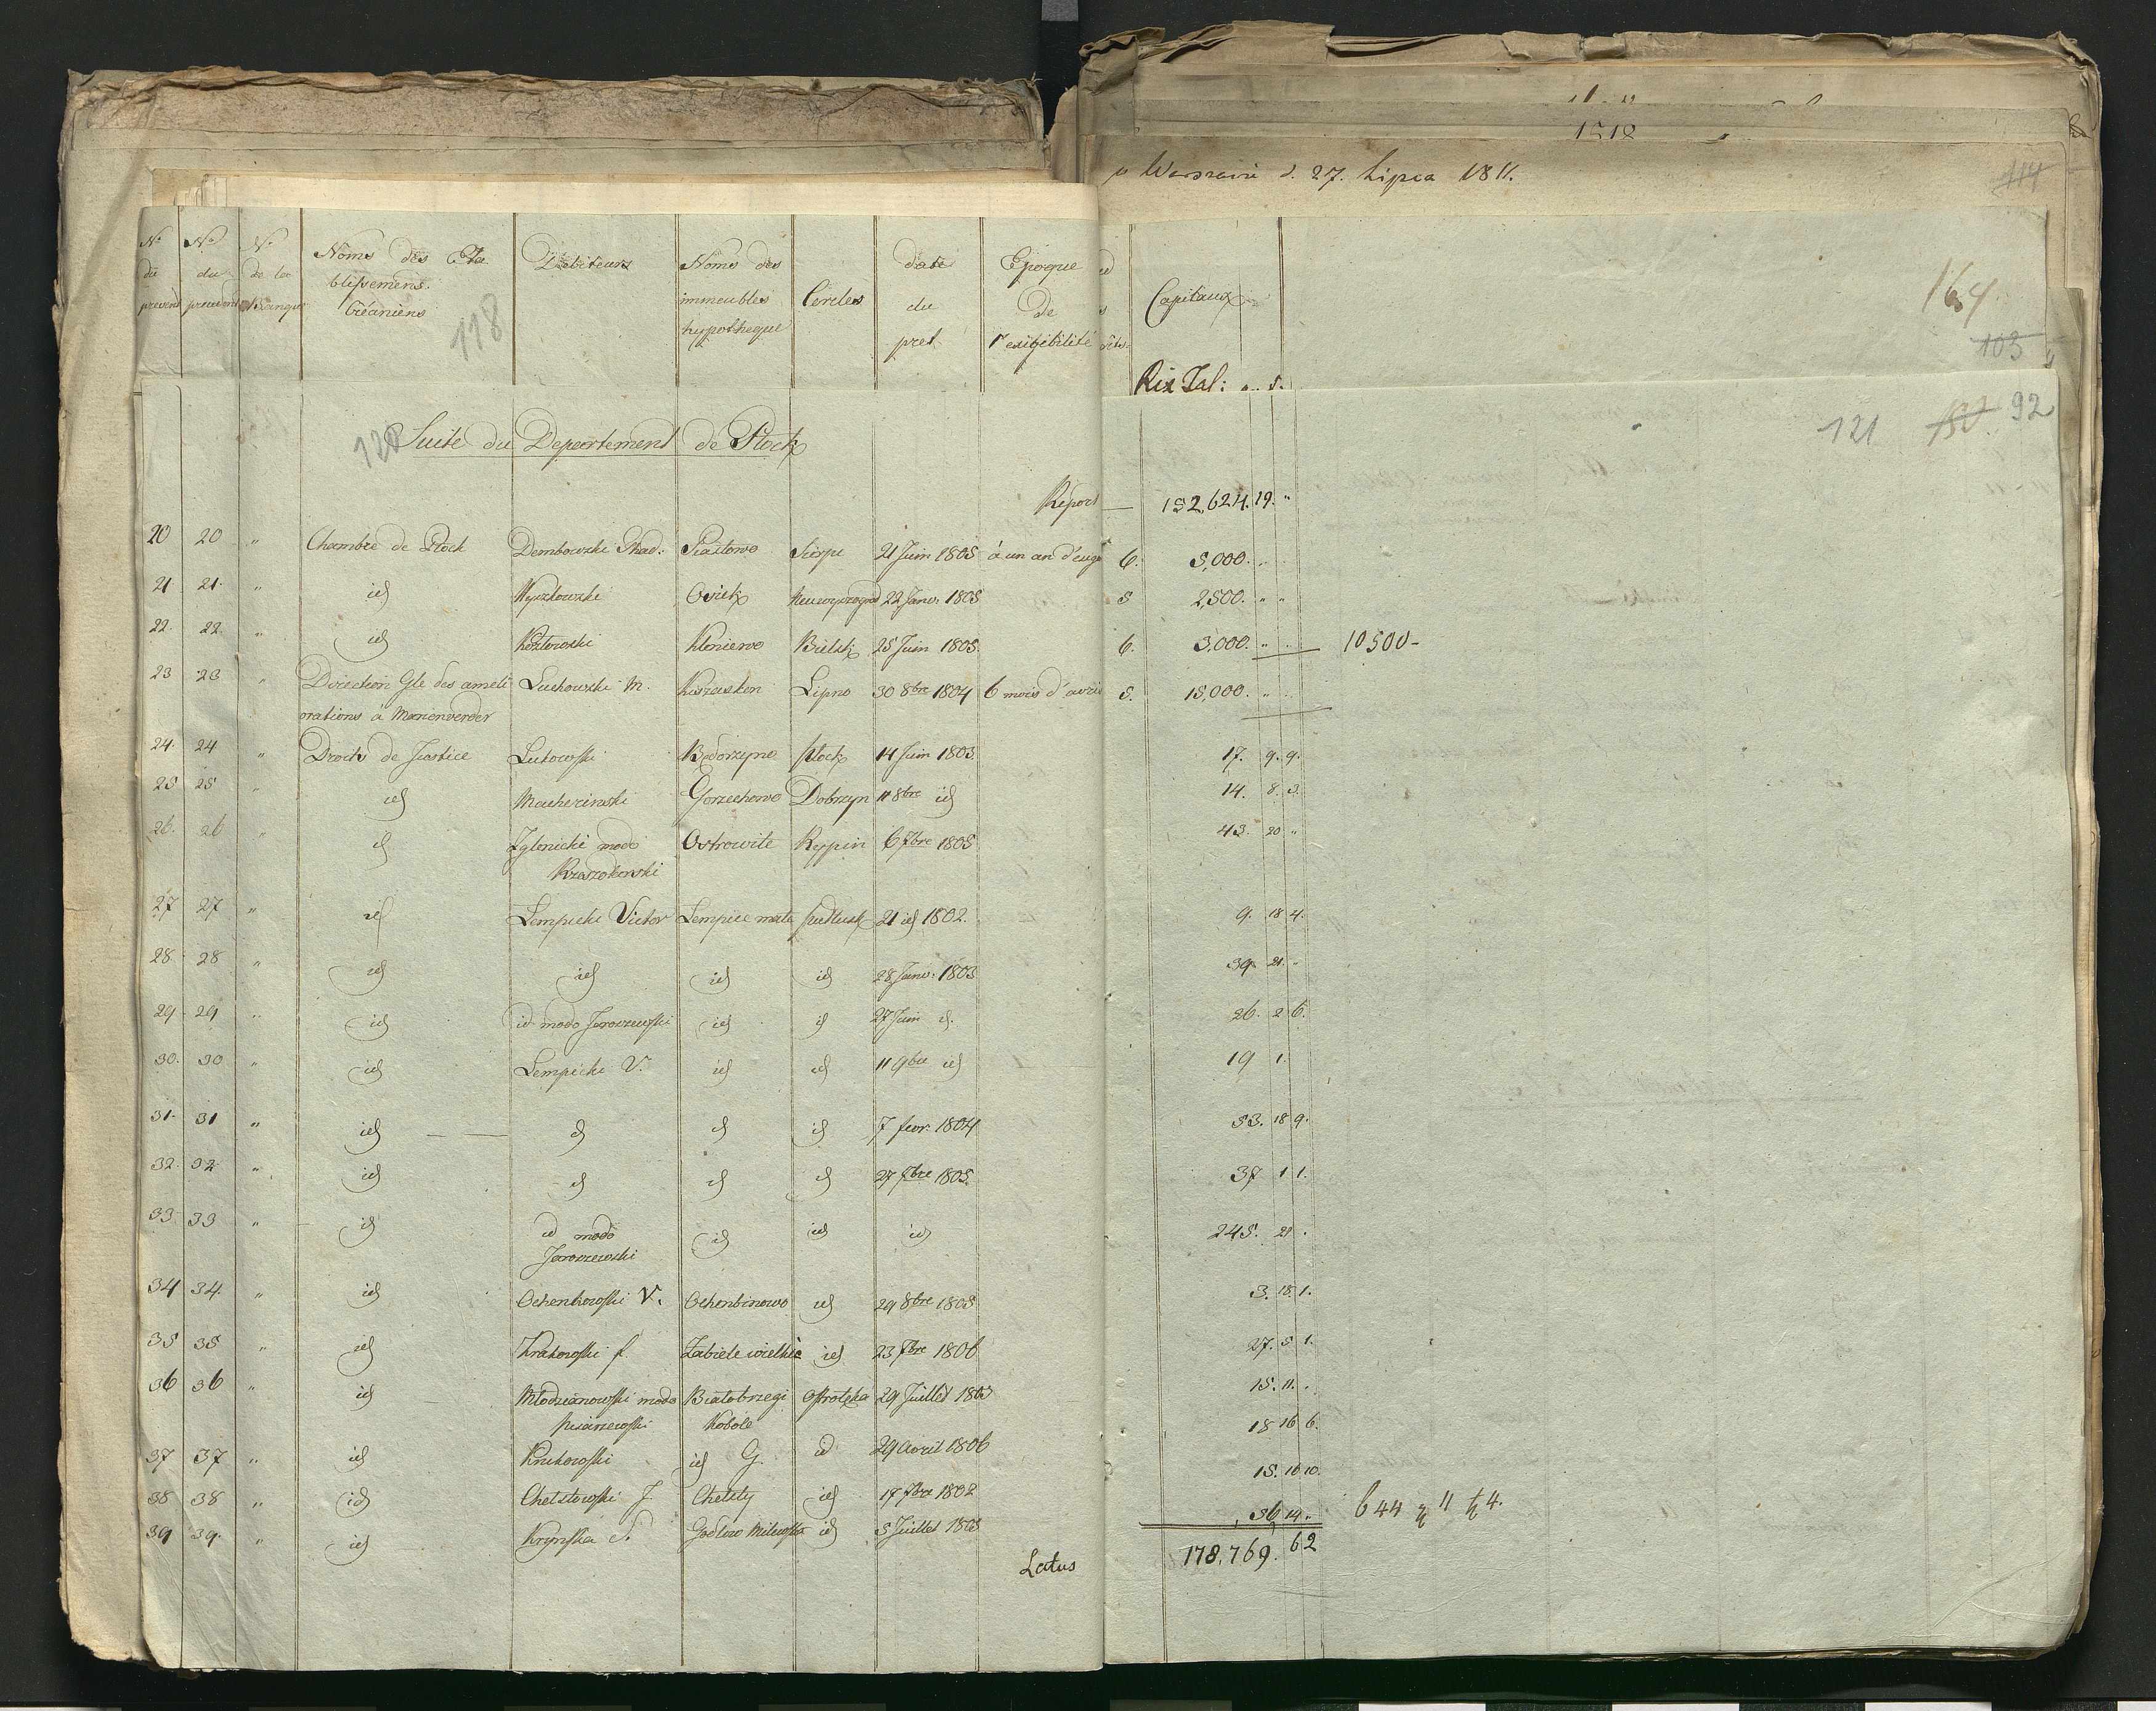 w Warszawie d. 27. Lipca 1811.
114
1518
164
103
No du present | No du precedent | No de la Banque | Noms des Etablissemens Créanciers | Debiteurs | Noms des immeubles hypotheque | Cercles | date du pret | Epoque de l'exigibilité | Capitaux
118
Rix Tal:
120 Suite du Departement de Plock
121 92
Report — 152,624. 19. "
20 20 " Chambre de Plock Dembowzki Thad: Piastowo Sierpc 21 Juin 1805 à un an d'exige 6. 5,000. "
21 21. " id Wyszkowzki Osiek 22 Janv: 1805 5 2,500. " "
22. 22. " id Kozlowski Kloniewo Bielsk 25 Juin 1805. 6. 3,000. " 10500-
23 23 " Direction Gle des ameli Luchowzki M. Lipno 30 8bre 1804 6 mois d'avis 5. 15,000. "
orations à Marienwerder
24. 24 " Droits de Justice Lutowski Bodorzyno plock 14 Juin 1803. 17. 9. 9.
25 25 " id Machczinski Gorzechowo Dobrzyn 11 8bre id 14. 8. 3.
26. 26 " id Zglenicki modo Ostrowite Ryppin 6 7bre 1805 43. 20 "
27 27 " id Lempicki Victor Lempice pultusk 21 id 1802. 9. 18 4.
28 28 " id id id id 28 Janv: 1803 39 21. "
29 29 " id id modo Jaroszewski id id 27 Juin id. 26. 2 6.
30. 30 " id Lempicki V. id id 11 9bre id 19 1.
31. 31 " id id id id 7 fevr: 1804 53. 18 9.
32. 32 " id id id id 27 7bre 1805. 37 1 1.
33 33 " id id modo id id id 245. 21 .
Jaroszewski
34 34. " id Ochenkowski V. id 29 8bre 1805 3. 18. 1.
35 35 " id Krakowski f. Zabiele wielkie id 23 7bre 1806 27. 5 1.
36 36 " id Mlodzianowski modo Bialobrzegi Ostrolęka 29 Juillet 1803 15. 11. .
Kobole 18 16 6.
37 37 " id Krukowski id G. id 29 Avril 1806
38 38 " id Chelstowski J. Chelsty id 17 7bre 1802 15. 16 10.
39 39. " id Krynska id 5 Juillet 1803 36 14. " 644 11 4.
Latus 178,769. 62